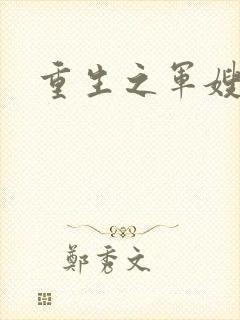 重生之军嫂
鄭秀文